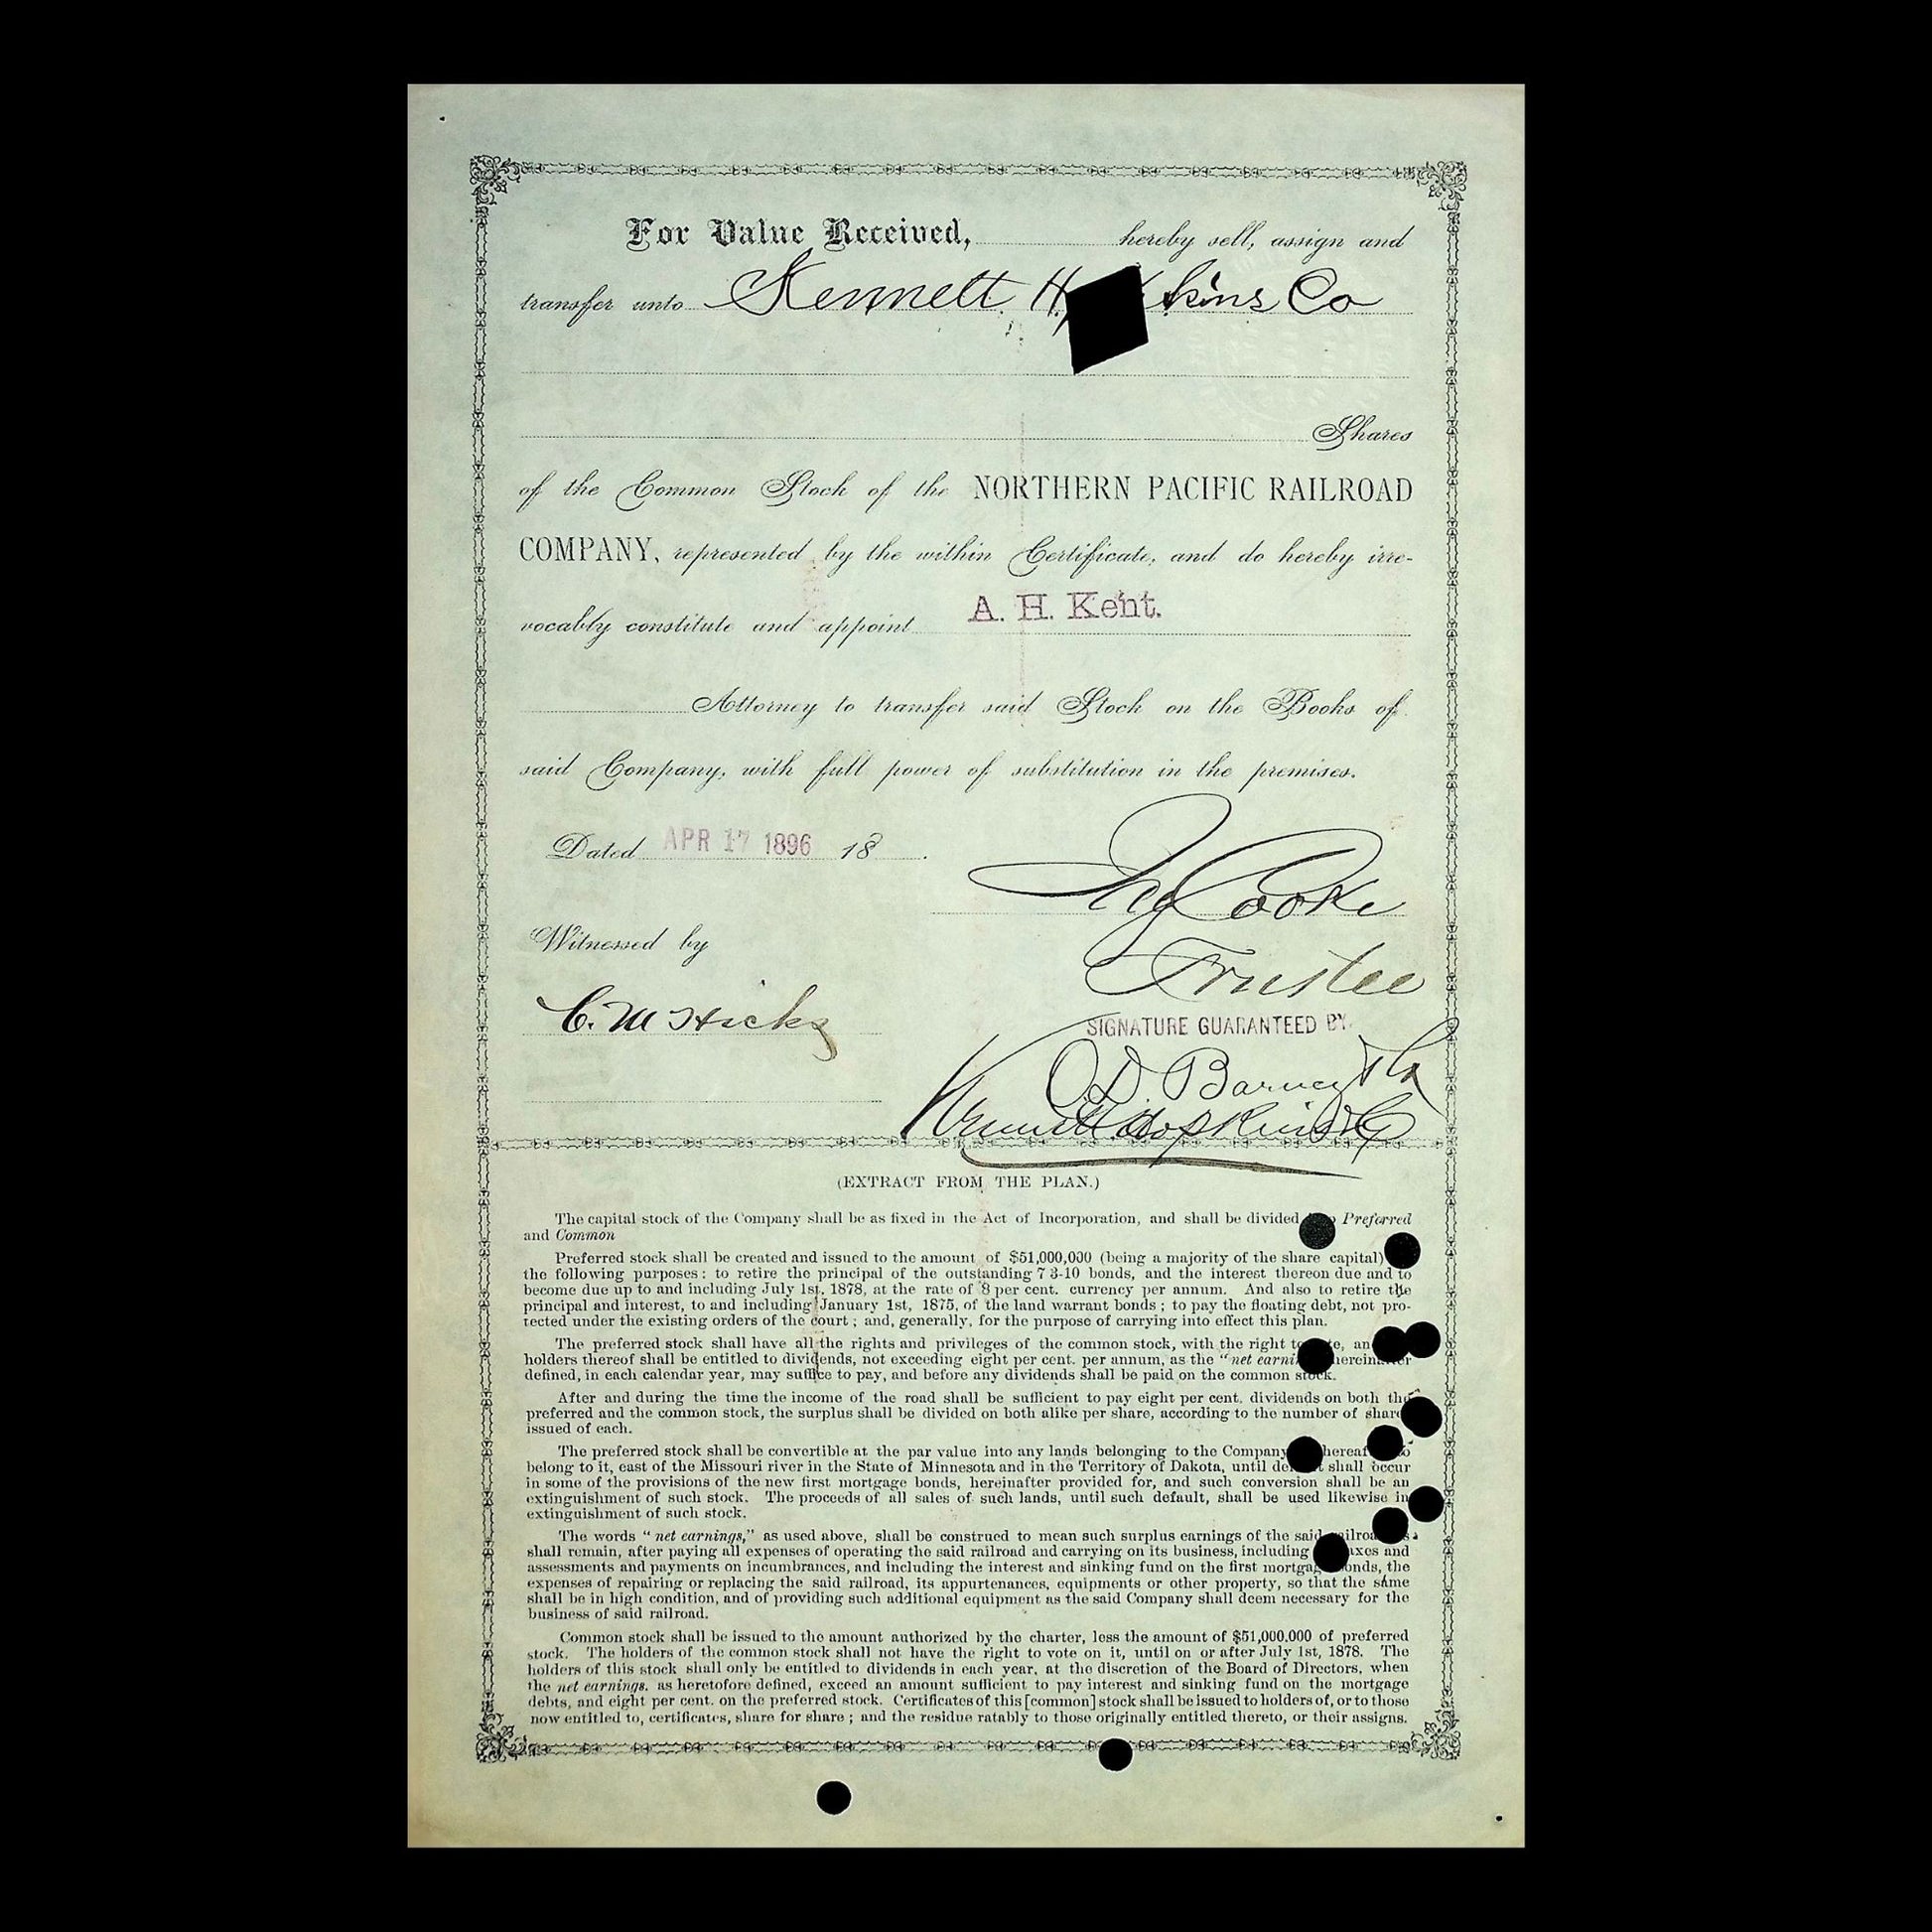 For Value Received, hereby sell, assign and
transfer unto Kennett H kins Co
Shares
of the Common Stock of the NORTHERN PACIFIC RAILROAD
COMPANY, represented by the within Certificate, and do hereby irre-
vocably constitute and appoint A. H. Kent.
Attorney to transfer said Stock on the Books of
said Company, with full power of substitution in the premises.
Dated APR 17 1896 18 .
Jay Cooke
Witnessed by
Trustee
C. M Hicks
SIGNATURE GUARANTEED BY
C. D. Barney & Co
Kennett Hopkins & Co
(EXTRACT FROM THE PLAN.)
The capital stock of the Company shall be as fixed in the Act of Incorporation, and shall be divided Preferred
and Common
Preferred stock shall be created and issued to the amount of $51,000,000 (being a majority of the share capital)
the following purposes: to retire the principal of the outstanding 7 3-10 bonds, and the interest thereon due and to
become due up to and including July 1st, 1878, at the rate of 8 per cent. currency per annum. And also to retire the
principal and interest, to and including January 1st, 1875, of the land warrant bonds; to pay the floating debt, not pro-
tected under the existing orders of the court; and, generally, for the purpose of carrying into effect this plan.
The preferred stock shall have all the rights and privileges of the common stock, with the right to
holders thereof shall be entitled to dividends, not exceeding eight per cent. per annum, as the "net earni hereinafter
defined, in each calendar year, may suffice to pay, and before any dividends shall be paid on the common stock.
After and during the time the income of the road shall be sufficient to pay eight per cent. dividends on both the
preferred and the common stock, the surplus shall be divided on both alike per share, according to the number of share
issued of each.
The preferred stock shall be convertible at the par value into any lands belonging to the Company hereaf to
belong to it, east of the Missouri river in the State of Minnesota and in the Territory of Dakota, until de shall occur
in some of the provisions of the new first mortgage bonds, hereinafter provided for, and such conversion shall be an
extinguishment of such stock. The proceeds of all sales of such lands, until such default, shall be used likewise in
extinguishment of such stock.
The words "net earnings," as used above, shall be construed to mean such surplus earnings of the said railroad as
shall remain, after paying all expenses of operating the said railroad and carrying on its business, including axes and
assessments and payments on incumbrances, and including the interest and sinking fund on the first mortgage bonds, the
expenses of repairing or replacing the said railroad, its appurtenances, equipments or other property, so that the same
shall be in high condition, and of providing such additional equipment as the said Company shall deem necessary for the
business of said railroad.
Common stock shall be issued to the amount authorized by the charter, less the amount of $51,000.000 of preferred
stock. The holders of the common stock shall not have the right to vote on it, until on or after July 1st, 1878. The
holders of this stock shall only be entitled to dividends in each year, at the discretion of the Board of Directors, when
the net earnings, as heretofore defined, exceed an amount sufficient to pay interest and sinking fund on the mortgage
debts, and eight per cent. on the preferred stock. Certificates of this [common] stock shall be issued to holders of, or to those
now entitled to, certificates, share for share; and the residue ratably to those originally entitled thereto, or their assigns.